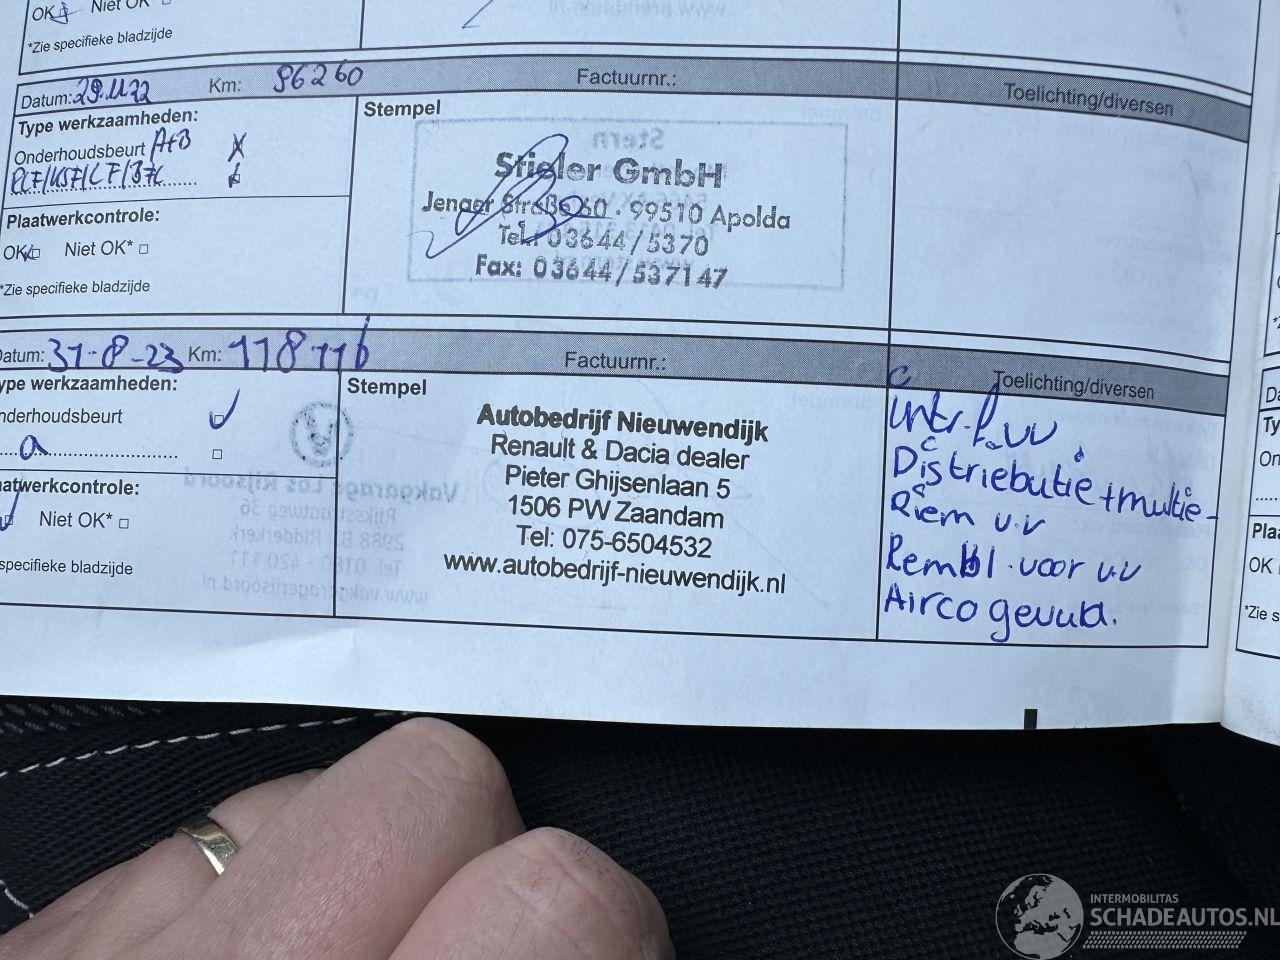 OK Niet OK
*Zie specifieke bladzijde
Datum: 29.11.22 Km: 96260 Factuurnr.: Toelichting/diversen
Type werkzaamheden:
Onderhoudsbeurt A+B
Plaatwerkcontrole:
OK Niet OK*
*Zie specifieke bladzijde
Stempel
Stieler GmbH
Jenaer Straße 60 · 99510 Apolda
Tel.: 03644/5370
Fax: 03644/537147
Datum: 31-8-23 Km: 118116 Factuurnr.: Toelichting/diversen
ype werkzaamheden:
nderhoudsbeurt
a
aatwerkcontrole:
Niet OK*
specifieke bladzijde
Stempel
Autobedrijf Nieuwendijk
Renault & Dacia dealer
Pieter Ghijsenlaan 5
1506 PW Zaandam
Tel: 075-6504532
www.autobedrijf-nieuwendijk.nl
Distriebutie + multie-
Riem v.v
Rembl. voor v.v
Airco gevuld.
Da
Ty
On
Plaa
OK
*Zie s
INTERMOBILITAS
SCHADEAUTOS.NL